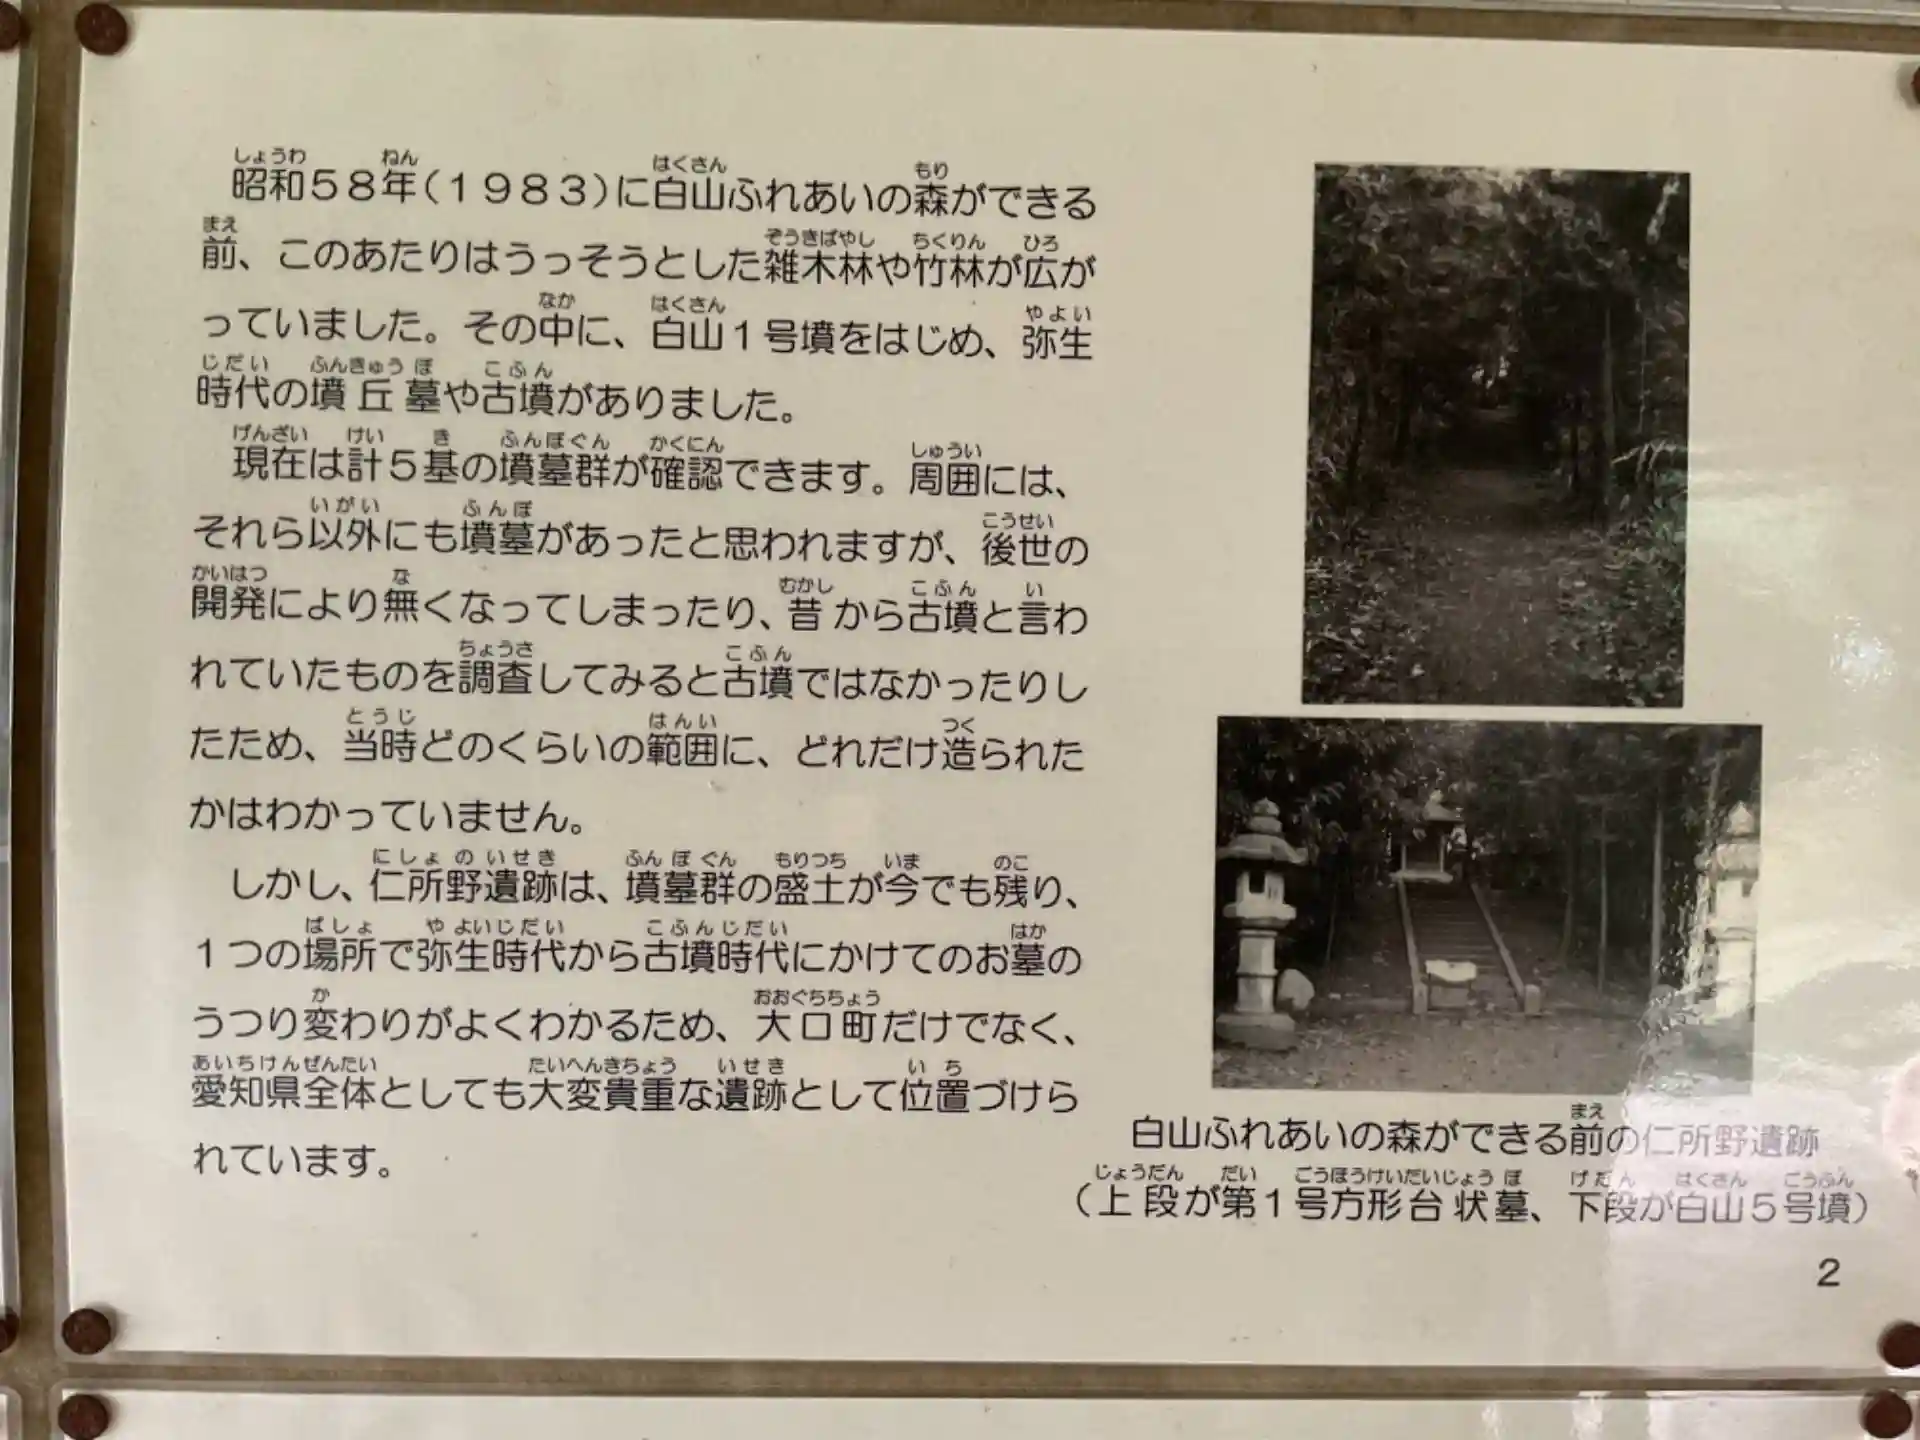 昭和５８年（１９８３）に白山ふれあいの森ができる
前、このあたりはうっそうとした雑木林や竹林が広が
っていました。その中に、白山１号墳をはじめ、弥生
時代の墳丘墓や古墳がありました。
現在は計５基の墳墓群が確認できます。周囲には、
それら以外にも墳墓があったと思われますが、後世の
開発により無くなってしまったり、昔から古墳と言わ
れていたものを調査してみると古墳ではなかったりし
たため、当時どのくらいの範囲に、どれだけ造られた
かはわかっていません。
しかし、仁所野遺跡は、墳墓群の盛土が今でも残り、
１つの場所で弥生時代から古墳時代にかけてのお墓の
うつり変わりがよくわかるため、大口町だけでなく、
愛知県全体としても大変貴重な遺跡として位置づけら
れています。
白山ふれあいの森ができる前の仁所野遺跡
（上段が第１号方形台状墓、下段が白山５号墳）
2